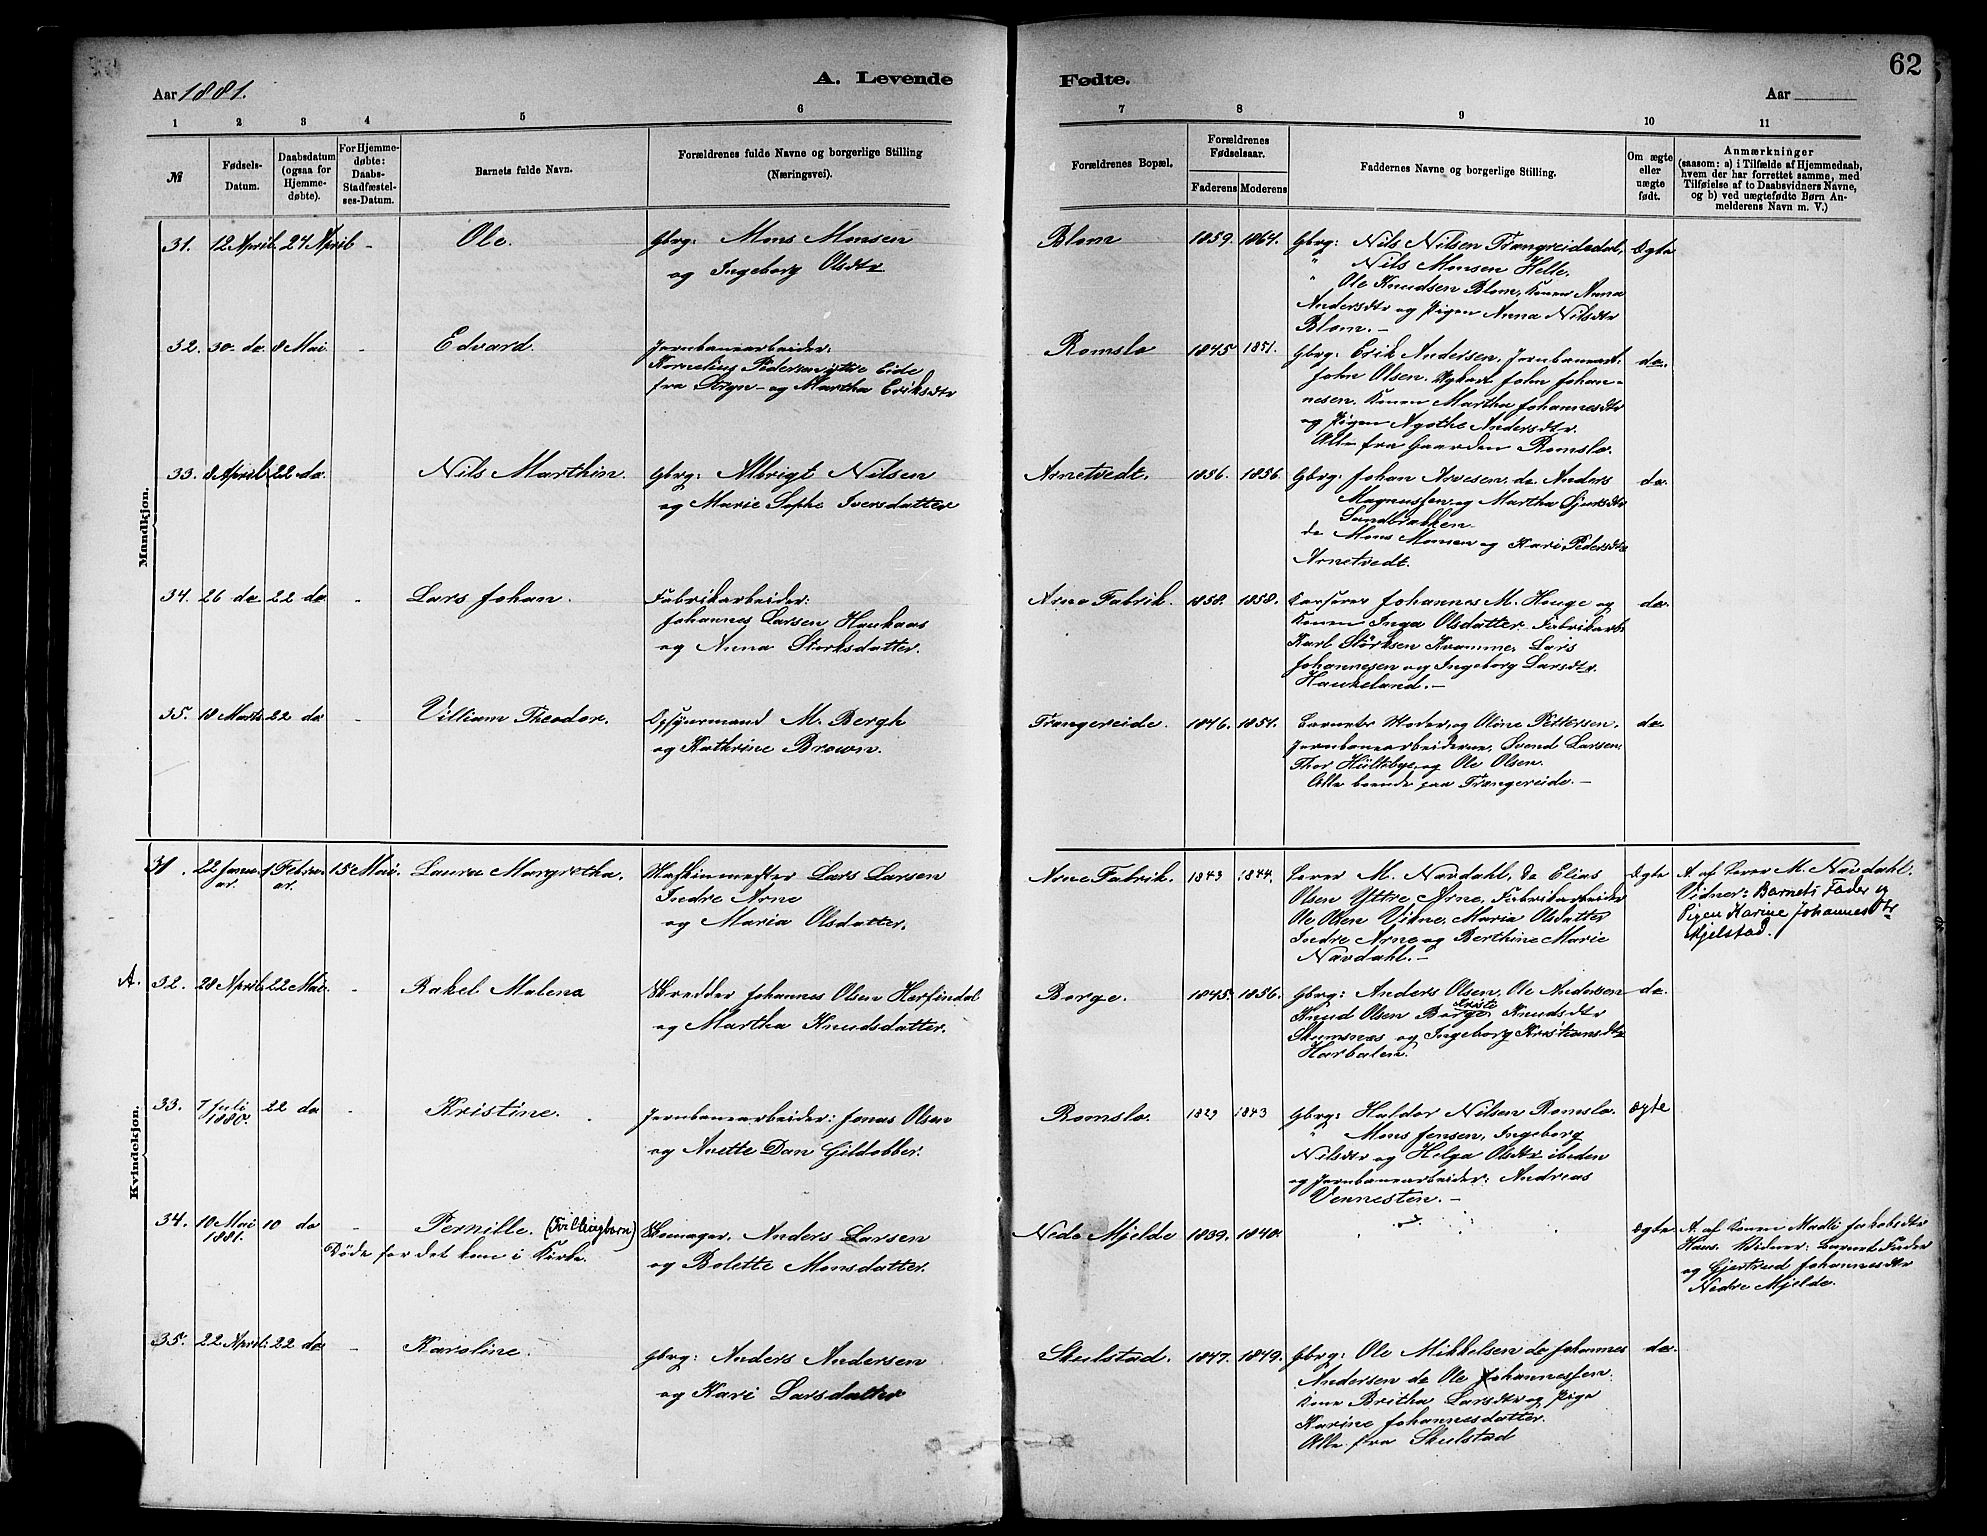 62
A. Levende Fødte.
Aar 1881.
Aar
1 2 3 4 5 6 7 8 9 10 11
№
Fødsels-Datum.
Daabsdatum (ogsaa for Hjemme-døbte).
For Hjemme-døbte: Daabs-Stadfæstel-ses-Datum.
Barnets fulde Navn.
Forældrenes fulde Navne og borgerlige Stilling (Næringsvei).
Forældrenes Bopæl.
Forældrenes Fødselsaar.
Faderens Moderens
Faddernes Navne og borgerlige Stilling.
Om ægte eller uægte født.
Anmærkninger
(saasom: a) i Tilfælde af Hjemmedaab,
hvem der har forrettet samme, med
Tilføielse af to Daabsvidners Navne,
og b) ved uægtefødte Børn An-
melderens Navn m. V.)
Mandkjøn.
31. 12 April. 24 April - Ole. Gbrg: Mons Monsen
og Ingeborg Olsdtr
Blom 1859. 1864. Gbrg: Nils Nilsen Trangreidedal, Ægte
" Nils Monsen Helle.
" Ole Knudsen Blom, Konen Anna
Andersdtr og Pigen Anna Nilsdtr
Blom. -
32. 30. do 8 Mai - Edvard. Jernbanearbeider:
Kornelius Pedersen ytre Eide
fra Stryn - og Martha Eriksdtr
Romslo 1845 1851. Gbrg: Erik Andersen, Jernbanearb.
John Olsen. John Johan-
nesen. Konen Martha Johannesdtr
og Pigen Agothe Andersdtr.
Alle fra Gaarden Romslo.
do.
33. 8 April 22 do. Nils Marthin. Gbrg: Albrigt Nilsen
og Marie Sophe Iversdatter
Arnetvedt. 1856. 1856. Gbrg: Johan Arvesen. do Anders
Magnussen og Martha
Sandbrækken.
do Mons Monsen og Kari Pedersdtr
Arnetvedt.
do.
34. 26 do. 22 do - Lars Johan. Fabrikarbeider:
Johannes Larsen Haukaas
og Anna Storksdatter.
Arne Fabrik. 1858. 1858. Johannes M. Houge og
Konen Inga Olsdatter. Fabrikarb.
Karl Störksen Kvamme. Lars
Johannesen og Ingeborg Larsdtr.
Haukeland. -
do.
35. 18 Marts 22 do - Villiam Theodor. Opsynsmand M. Bergh
og Kathrine Brown.
Trangereide. 1846. 1851. Barnets Moder, og Oline Pettersen.
Jernbanearbeiderne, Svend Larsen,
Thor Hultebye, og Ole Olsen.
Alle boende paa Trangereide. -
do.
Kvindekjøn.
31. 22 Janu- 1 Febru- 15 Mai. Laura Margretha. Maskinmester Lars Larsen
ar. ar. Indre Arne
og Maria Olsdatter.
Arne Fabrik. 1843 1844. Lærer M. Navdahl, do Elias
Olsen Ytre Arne, Fabrikarbeider
Ole Olsen Vikne, Maria Olsdatter
Indre Arne og Berthine Marie
Navdahl. -
Ægte A. af Lærer M. Navdahl.
Vidner: Barnets Fader og
Pigen Karine Johannesdtr
Mjelstad.
A. 32. 28 April. 22 Mai. - Rakel Malena Skredder Johannes Olsen Herfindal
og Martha Knudsdatter.
Borge. 1845. 1856. Gbrg: Anders Olsen, Ole Andersen
Knud Olsen Borge, Kriste Knudsdtr
Skumsnæs og Ingeborg Kristiansdtr
Harbalen.
do.
33. 7 Juli 22 do - Kristine. Jernbanearbeider: Jonas Olsen
1880. og Anette Dan Gildobber.
Romslo. 1829 1843 Gbrg: Haldor Nilsen Romslo.
" Mons Jensen, Ingeborg
Nilsdtr og Helga Olsdtr ibeden
og Jernbanearbeider: Andreas
Vennesten. -
Ægte
34. 10 Mai 10 do - Pernille. (Tvillingbarn) Skomager. Anders Larsen
1881. Døde før det kom i Kirke. og Bolette Monsdatter.
Nedo Mjelde 1839. 1840.
Ægte A. af Konen Madli Jakobsdtr
Haus. Vidner: Barnets Fader
og Gjertrud Johannesdtr
Nedre Mjelde.
35. 22 April. 22 do - Karoline. Gbrg: Anders Andersen
og Kari Larsdatter
Skulstad. 1847. 1849. Gbrg: Ole Mikkelsen do Johannes
Andersen do Ole Johannessen.
Kone Britha Larsdtr og Pige
Karine Johannesdatter.
Alle fra Skulstad
do.